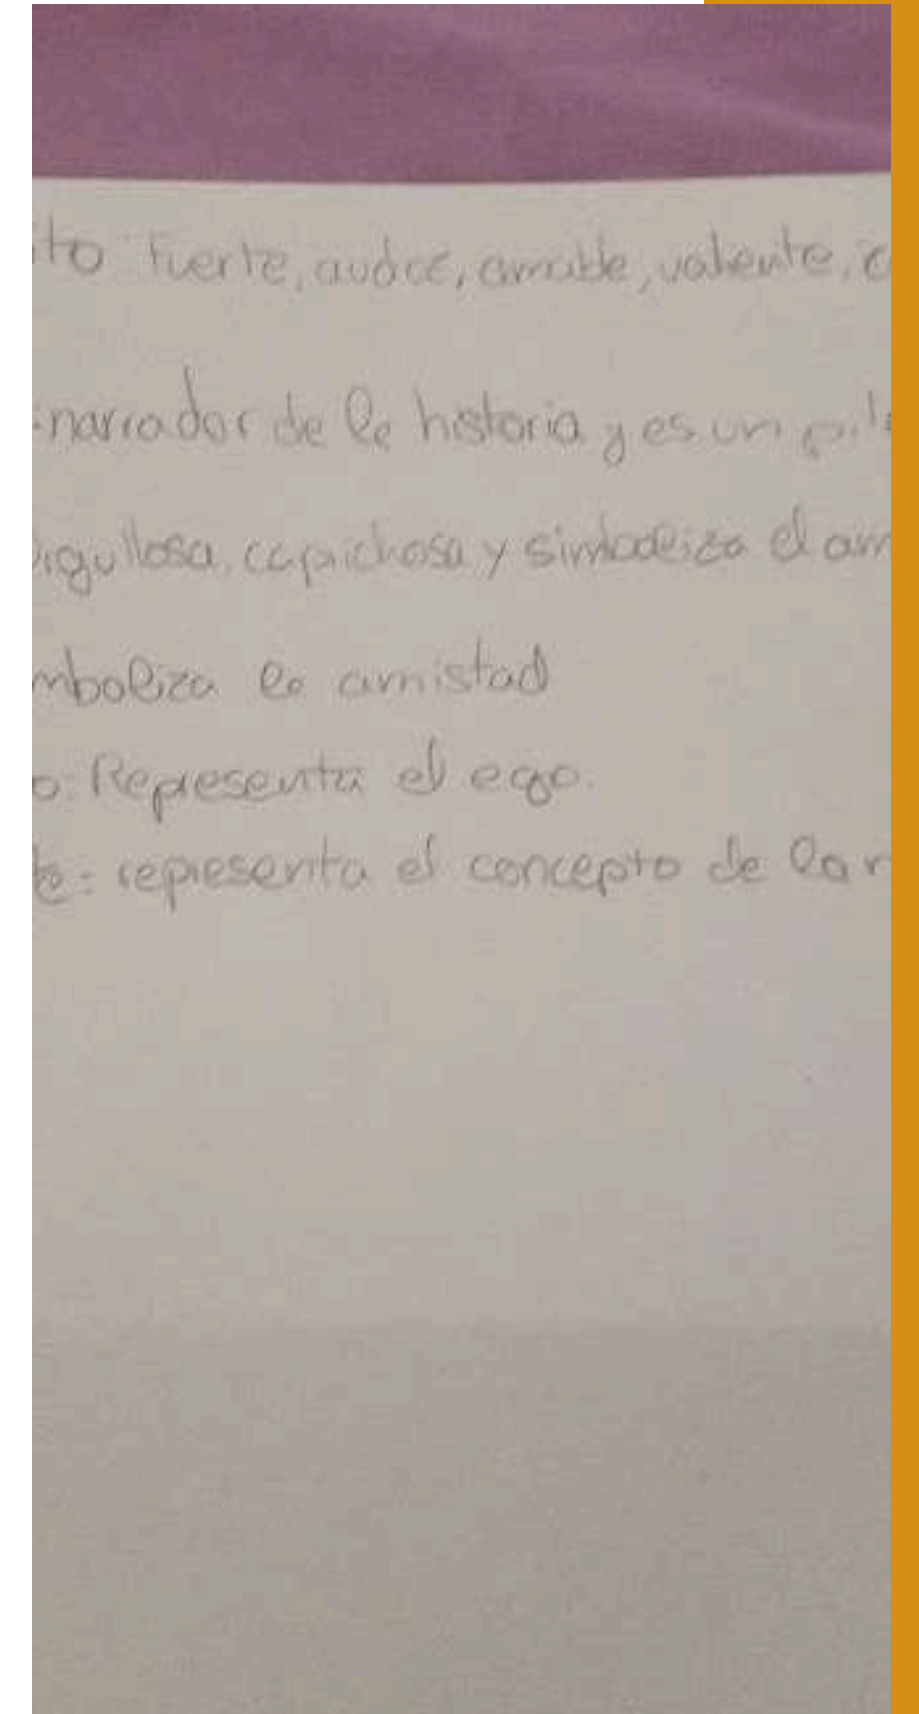 ito fuerte, audaz, amable, valiente,
narrador de la historia y es un
orgullosa, caprichosa y simboliza el am
mboliza la amistad
o: Representa el ego.
te: representa el concepto de la r